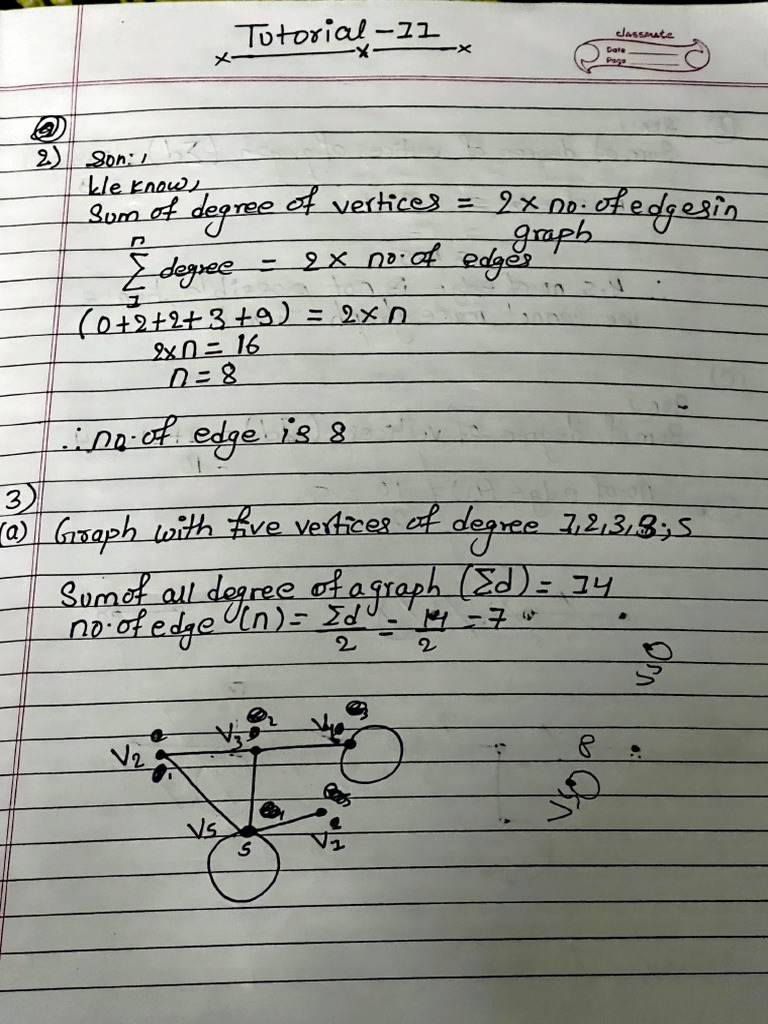 Tutorial - II
classmate
Date
Page
2) Son:,
We know,
Sum of degree of vertices = 2 × no. of edges in
graph
n
Σ degree = 2 × no. of edges
1
(0+2+2+3+9) = 2 × n
2×n = 16
n = 8
∴ no. of edge is 8
3)
(a) Graph with five vertices of degree 1,2,3,3,5
Sum of all degree of a graph (Σd) = 14
no. of edge (n) = Σd/2 = 14/2 = 7
V2 V3 V4
8
V5 V1
5